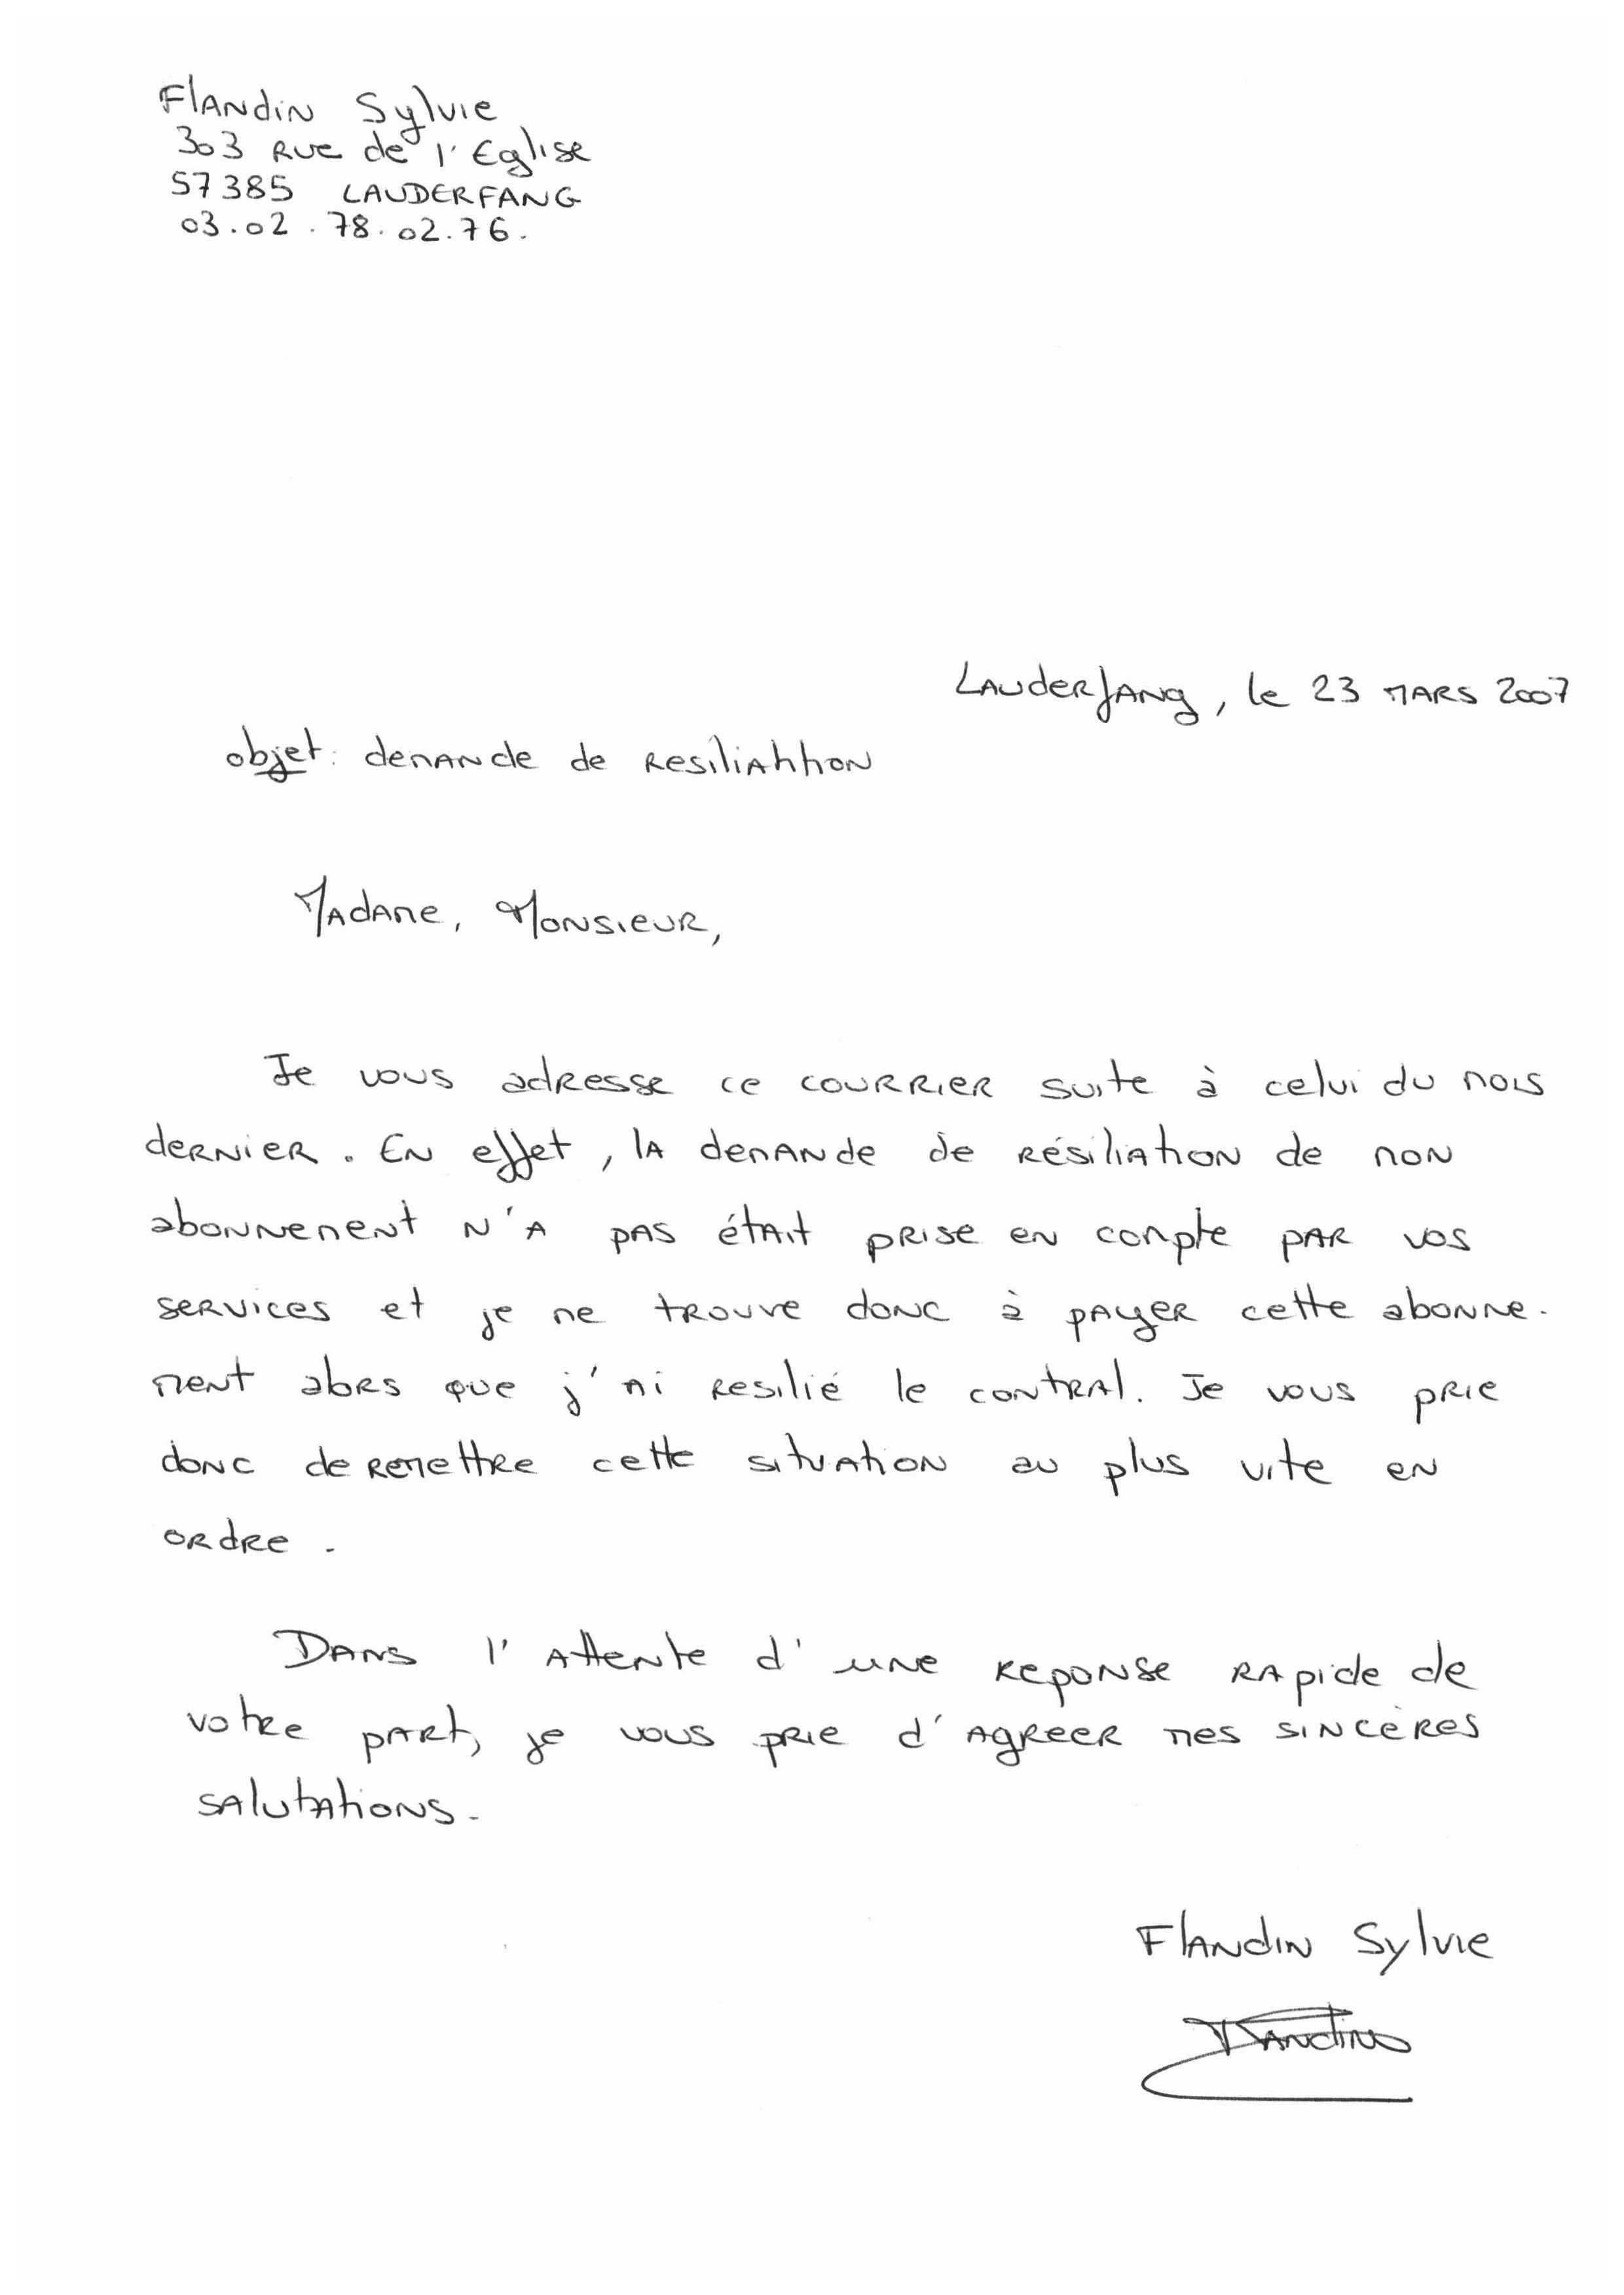 Flandin Sylvie
303 Rue de l'Eglise
57385 LAUDERFANG
03.02.78.02.76.
Lauderfang, le 23 MARS 2007
objet: demande de resiliattion
Madame, Monsieur,
Je vous adresse ce courrier suite à celui du mois
dernier. En effet, la demande de résiliation de mon
abonnement n'a pas était prise en compte par vos
services et je me trouve donc à payer cette abonne-
ment alors que j'ai resilié le contrat. Je vous prie
donc de remettre cette situation au plus vite en
ordre.
Dans l'attente d'une reponse rapide de
votre part, je vous prie d'agreer mes sincères
salutations.
Flandin Sylvie
Flandin